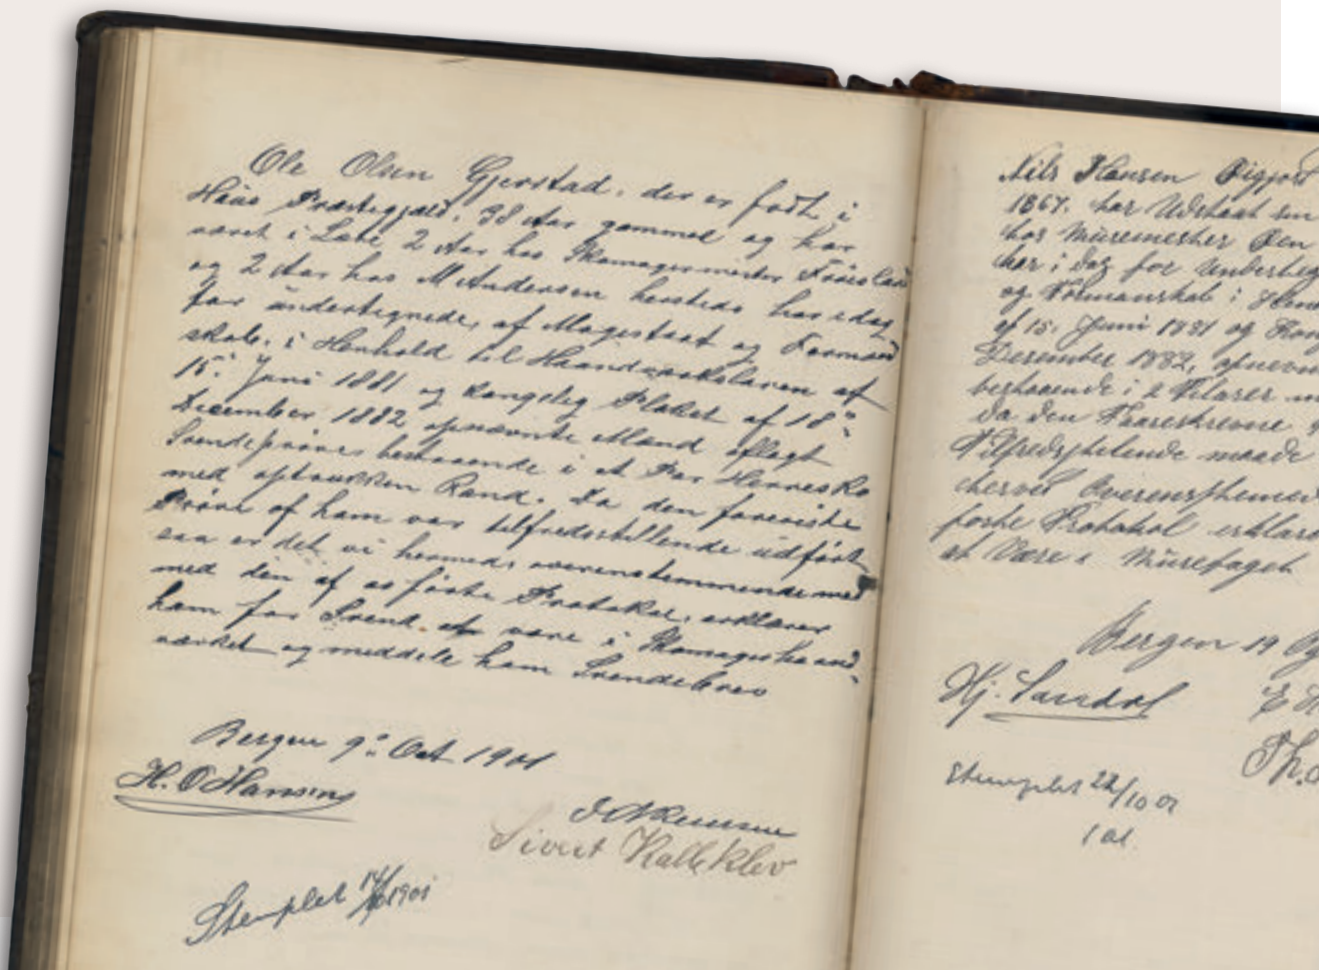 Ole Olsen Gjerstad, der er født i
Haus Præstegjæld, 38 Aar gammel og har
været i Lære 2 Aar hos Skomagermester
og 2 Aar hos M Andersen hersteds har idag
for undertegnede, af Magestrat og Formand
skab, i Henhold til Haandværksloven af
15. Juni 1881 og kongelig Plakat af 18
December 1882 opnævnte Mænd aflagt
Svendeprøve, bestaaende i et Par Herresko
med Rand. Da den foreviste
Prøve af ham var tilfredsstillende udført
saa er det vi hermed, overenstemmende med
med den af os førte Protokol, erklærer
ham for Svend at være i Skomagerhaand,
værket og meddele ham Svendebrev
Bergen 9 Oct 1901
H. O Hansen
Sivert Kalleklev
Stemplet 14/10 1901
Nils Hansen
1867. har Udstaaet sin
hos Muremester
har i dag for Underteg
og Formanskab i Hen
af 15. Juni 1881 og Kong
Desember 1882, opnevn
bestaaende i 2
da den
Tilfredsstelende maade
herved Overenstemmed
førte Protokol erklær
at Være i Murefaget
Bergen 19
Hj. Sandal
E H
Th.
Stemplet 22/10 01
1 01